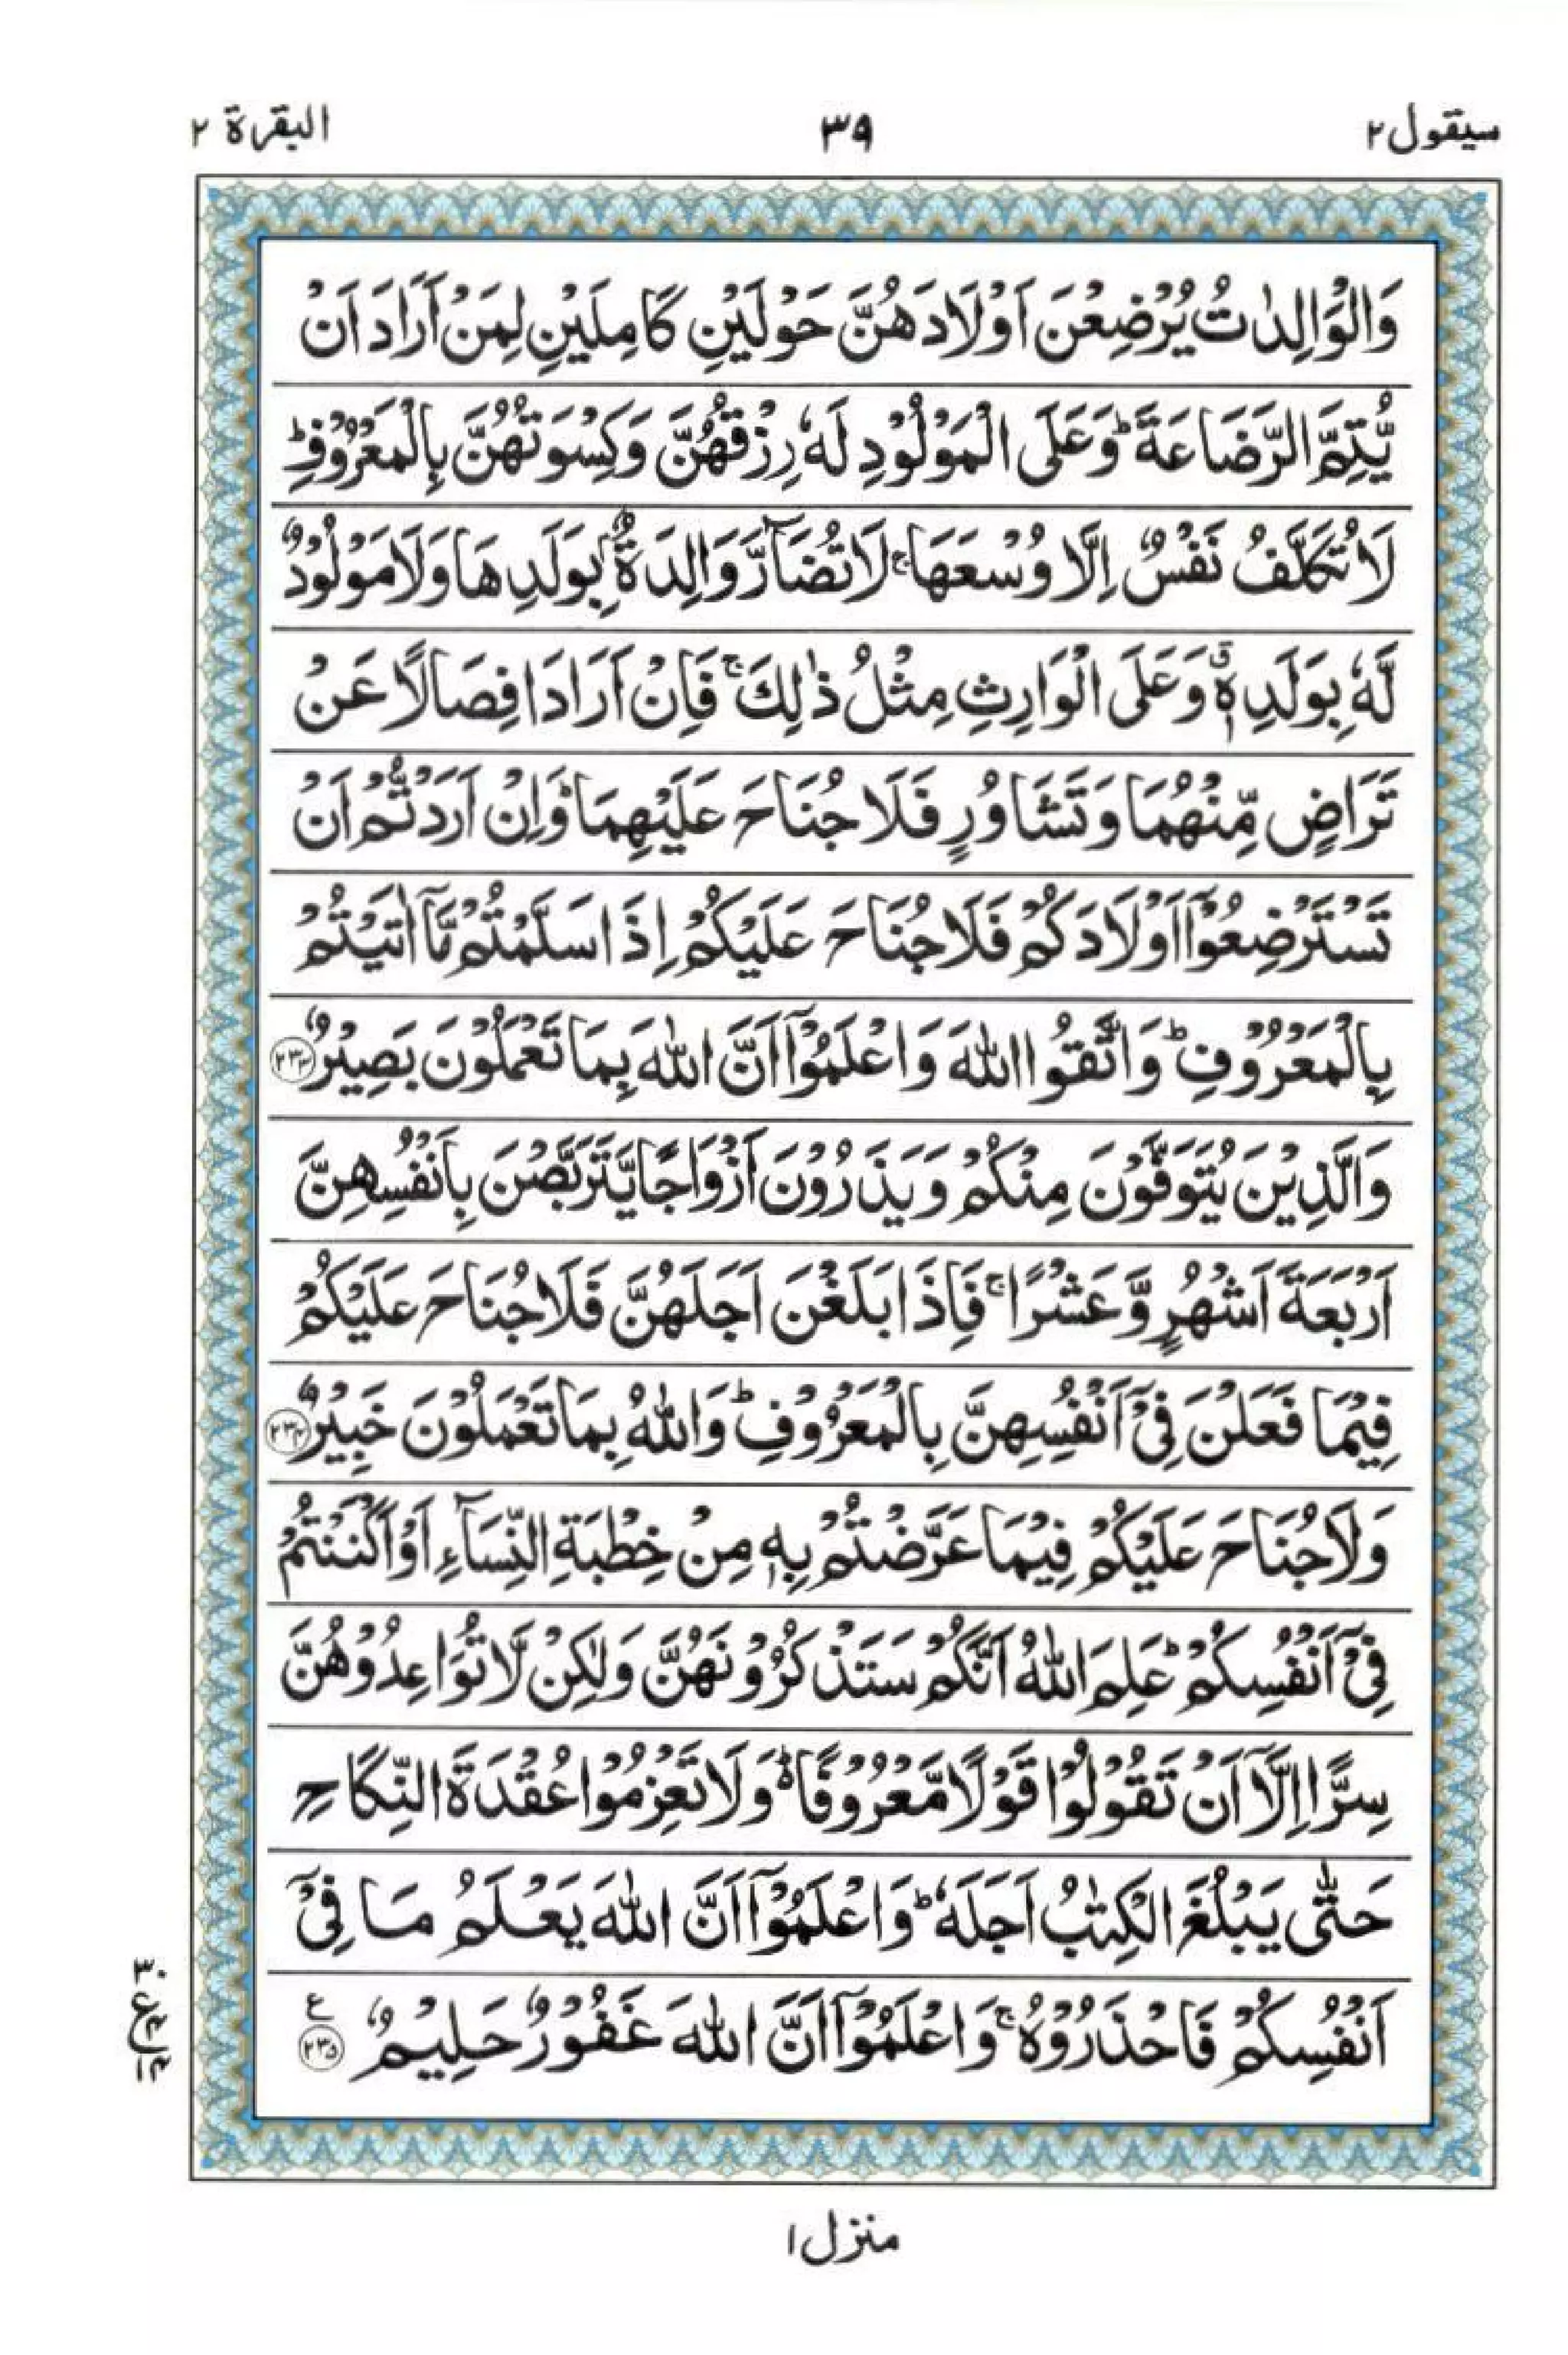 سيقول ٢
٣٩
البقرة ٢
وَالْوَالِدٰتُ يُرْضِعْنَ اَوْلَادَهُنَّ حَوْلَيْنِ كَامِلَيْنِ لِمَنْ اَرَادَ اَنْ
يُّتِمَّ الرَّضَاعَةَ ؕ وَعَلَى الْمَوْلُوْدِ لَهٗ رِزْقُهُنَّ وَكِسْوَتُهُنَّ بِالْمَعْرُوْفِ ؕ
لَا تُكَلَّفُ نَفْسٌ اِلَّا وُسْعَهَا ۚ لَا تُضَآرَّ وَالِدَةٌۢ بِوَلَدِهَا وَلَا مَوْلُوْدٌ
لَّهٗ بِوَلَدِهٖ ۗ وَعَلَى الْوَارِثِ مِثْلُ ذٰلِكَ ۚ فَاِنْ اَرَادَا فِصَالًا عَنْ
تَرَاضٍ مِّنْهُمَا وَتَشَاوُرٍ فَلَا جُنَاحَ عَلَيْهِمَا ؕ وَاِنْ اَرَدْتُّمْ اَنْ
تَسْتَرْضِعُوْۤا اَوْلَادَكُمْ فَلَا جُنَاحَ عَلَيْكُمْ اِذَا سَلَّمْتُمْ مَّاۤ اٰتَيْتُمْ
بِالْمَعْرُوْفِ ؕ وَاتَّقُوا اللّٰهَ وَاعْلَمُوْۤا اَنَّ اللّٰهَ بِمَا تَعْمَلُوْنَ بَصِيْرٌ ﴿٢٣٣﴾
وَالَّذِيْنَ يُتَوَفَّوْنَ مِنْكُمْ وَيَذَرُوْنَ اَزْوَاجًا يَّتَرَبَّصْنَ بِاَنْفُسِهِنَّ
اَرْبَعَةَ اَشْهُرٍ وَّعَشْرًا ۚ فَاِذَا بَلَغْنَ اَجَلَهُنَّ فَلَا جُنَاحَ عَلَيْكُمْ
فِيْمَا فَعَلْنَ فِيْۤ اَنْفُسِهِنَّ بِالْمَعْرُوْفِ ؕ وَاللّٰهُ بِمَا تَعْمَلُوْنَ خَبِيْرٌ ﴿٢٣٤﴾
وَلَا جُنَاحَ عَلَيْكُمْ فِيْمَا عَرَّضْتُمْ بِهٖ مِنْ خِطْبَةِ النِّسَآءِ اَوْ اَكْنَنْتُمْ
فِيْۤ اَنْفُسِكُمْ ؕ عَلِمَ اللّٰهُ اَنَّكُمْ سَتَذْكُرُوْنَهُنَّ وَلٰكِنْ لَّا تُوَاعِدُوْهُنَّ
سِرًّا اِلَّاۤ اَنْ تَقُوْلُوْا قَوْلًا مَّعْرُوْفًا ؕ۬ وَلَا تَعْزِمُوْا عُقْدَةَ النِّكَاحِ
حَتّٰى يَبْلُغَ الْكِتٰبُ اَجَلَهٗ ؕ وَاعْلَمُوْۤا اَنَّ اللّٰهَ يَعْلَمُ مَا فِيْۤ
اَنْفُسِكُمْ فَاحْذَرُوْهُ ۚ وَاعْلَمُوْۤا اَنَّ اللّٰهَ غَفُوْرٌ حَلِيْمٌ ﴿٢٣٥﴾ ع
منزل ١